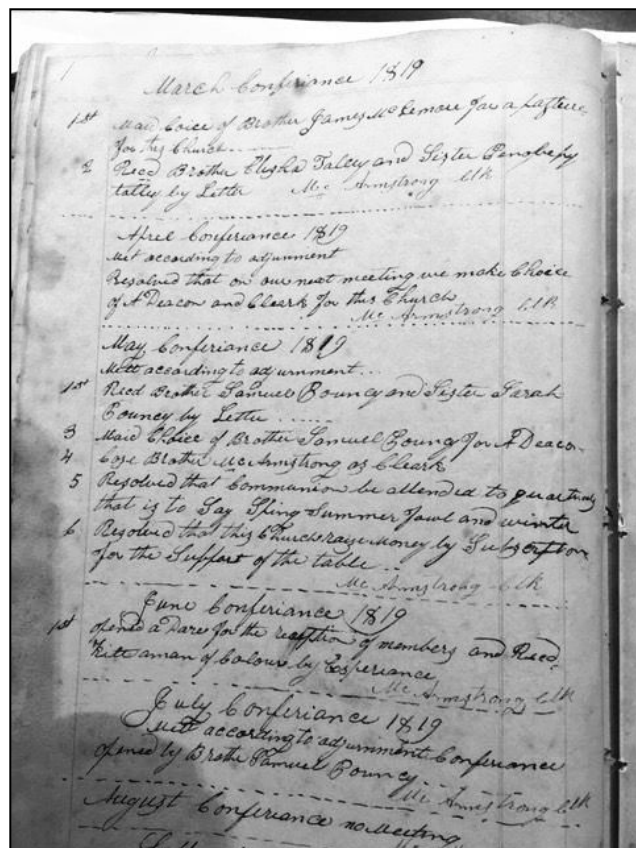 1
March Conferiance 1819
1st Maid Coice of Brother James McLemore for a
for this Church
2 Recd Brother Elisha Talley and Sister Penelopy
talley by Letter Mc Armstrong Clk
Aprel Conferiance 1819
Met according to adjunment
Resolved that on our next meeting we make Choice
of A Deacon and Cleark for this Church
Mc Armstrong Clk
May Conferiance 1819
Mett according to adjurnment
1st Recd Brother Samuel Pouncy and Sister Sarah
Pouncy by Letter
3 Maid Choice of Brother Samuel Poung for A Deacon
4 Coze Brother Mc Armstrong as Cleark
5 Resolved that Communion be attended to
that is to Say Sping Summer fawl and winter
6 Resolved that this Church raige Money by Subscription
for the Support of the table
Mc Armstrong Clk
June Conferiance 1819
1st opened a Dare for the reception of members and Recd
Kitt a man of Colour by Experiance
Mc Armstrong Clk
July Conferiance 1819
Mett according to adjurnment Conferiance
opened by Brothe Samuel Pouncy
Mc Armstrong Clk
August Conferiance no Meeting